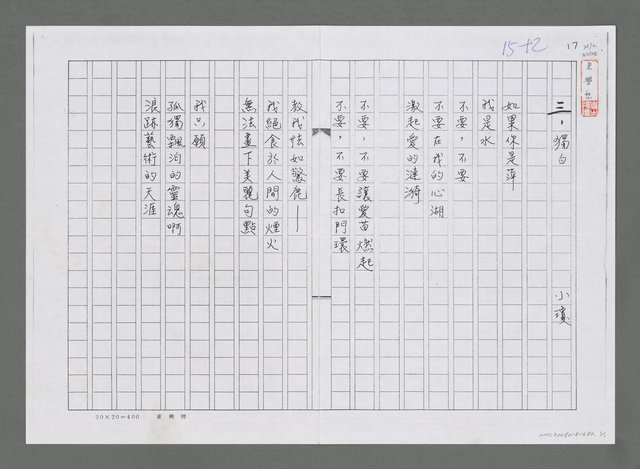 15-12
17
三，獨白
小瓊
如果你是萍
我是水
不要，不要
不要在我的心湖
激起愛的漣漪
不要，不要讓愛苗燃起
不要，不要長扣門環
教我怯如驚鹿——
我絕食於人間的煙火
無法畫下美麗句點
我只願
孤獨飄泊的靈魂啊
浪跡藝術的天涯
20×20=400